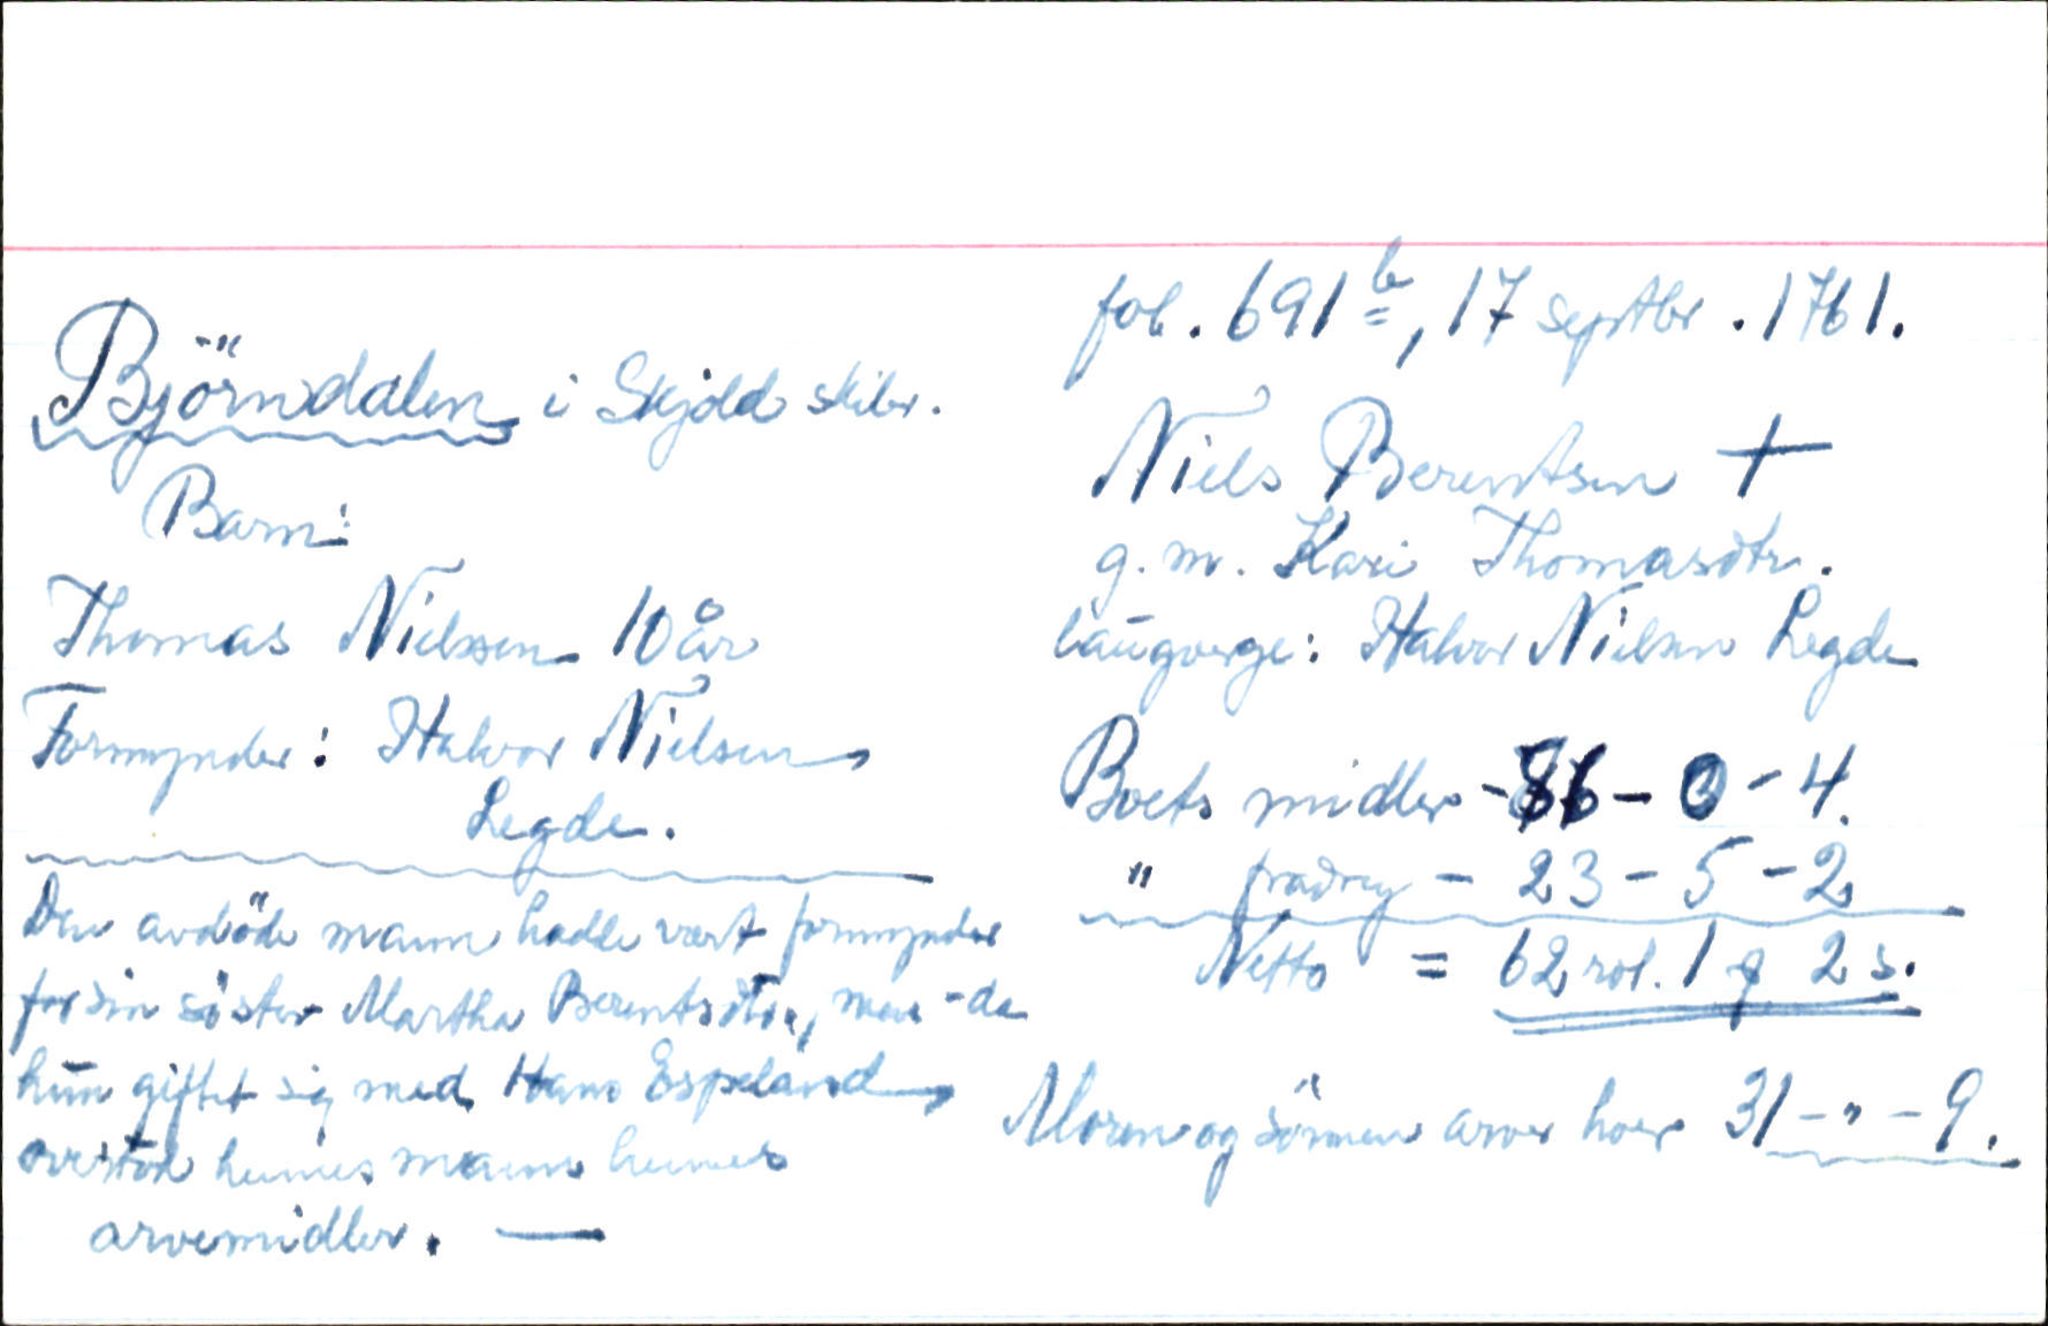 Björndalen i Skjold skibr.
Barn:
Thomas Nielssen 10 år
Formynder: Halvor Nielsen
Legde.
Den avdöde mann hadde vært formynder
for sin söster Martha Berentsdtr., men da
hun giftet sig med Hans Espeland
overtok hennes mann hennes
arvemidler. —
fol. 691 b, 17 septbr. 1761.
Niels Berentsen +
g. m. Kari Thomasdtr.
laugverge: Halvor Nielsen Legde
Boets midler - 86 - 0 - 4.
" fradrag - 23 - 5 - 2
Netto = 62 rdl. 1 q 2 s.
Moren og sönnen arver hver 31 - " - 9.